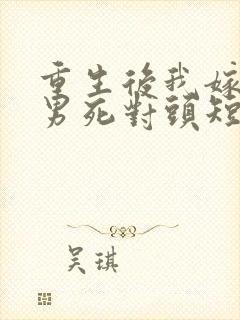 重生後我嫁
男死對頭短
吳琪